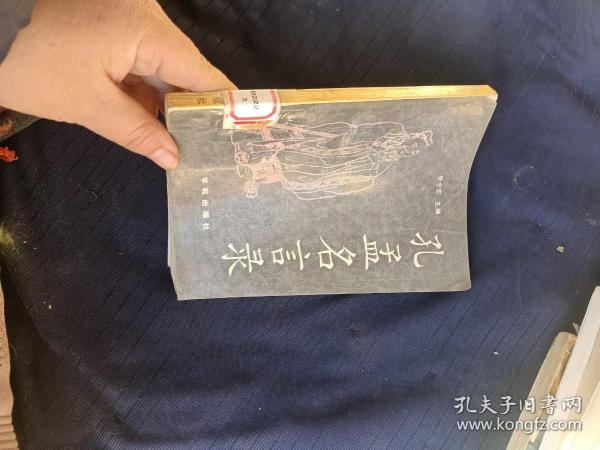 孔孟名言录
主编
学苑出版社
孔夫子旧书网
www.kongfz.com